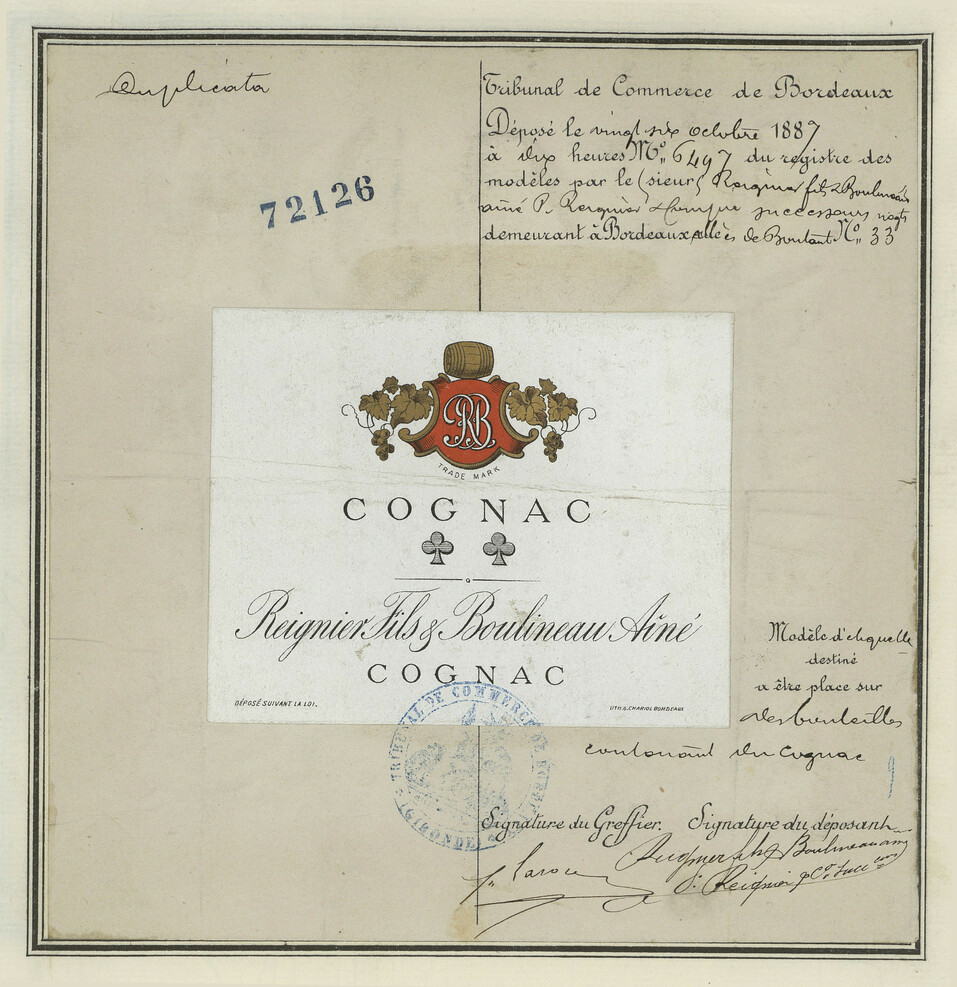 Duplicata
72126
Tribunal de Commerce de Bordeaux
Déposé le vingt six octobre 1887
à dix heures No. 6497 du registre des
modèles par le (sieur) Reignier fils & Boulineau
ainé P. Reignier & Compie successeurs négts
demeurant à Bordeaux allées de Boutaut No. 33
RB
TRADE MARK
COGNAC
Reignier Fils & Boulineau Aîné
COGNAC
DÉPOSÉ SUIVANT LA LOI.
LITH. G. CHARIOL BORDEAUX
Modèle d'etiquette
destiné
a être place sur
des bouteilles
contenant du Cognac
TRIBUNAL DE COMMERCE DE BORDEAUX
(GIRONDE)
Signature du Greffier. Signature du déposant
Reignier fils & Boulineau ainé
P. Reignier & Co. Succ